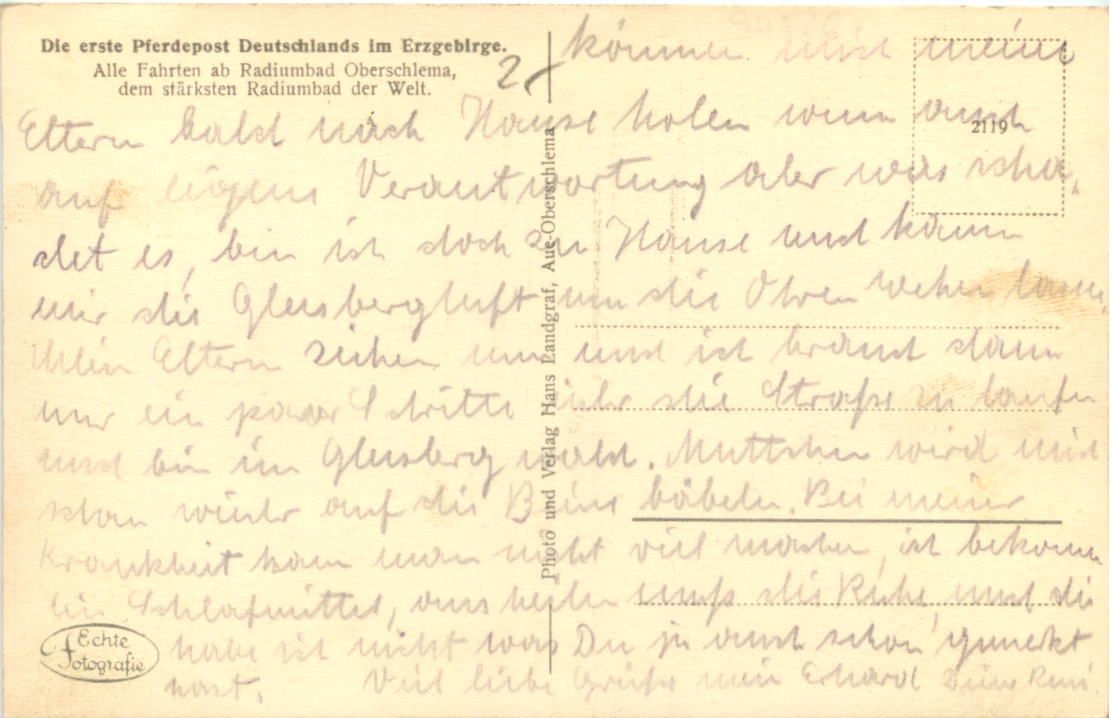 Die erste Pferdepost Deutschlands im Erzgebirge.
Alle Fahrten ab Radiumbad Oberschlema,
dem stärksten Radiumbad der Welt.
2
2119
können mich meine
Eltern bald nach Hause holen wenn auch
auf eigene Verantwortung aber was scha-
det es, bin ich doch zu Hause und kann
mir die Gleisbergluft um die Ohren wehen lassen.
Mein Eltern ziehen um und ich brauch dann
nur ein paar Schritte über die Straße zu laufen
und bin im Gleisbergwald. Muttchen wird mich
schon wieder auf die Beine bäbeln. Bei meiner
Krankheit kann man nicht viel machen, ich bekomme
ein Schlafmittel, ausheilen muß die Ruhe, und die
habe ich nicht was Du ja auch schon gemerkt
hast. Viel liebe Grüße mein Erhard Deine
Photo und Verlag Hans Landgraf, Aue-Oberschlema
Echte
Fotografie